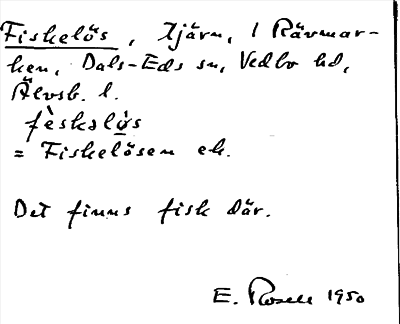 Fiskelös, Tjärn, i Rävmar-
ken, Dals-Eds sn, Vedbo hd,
Älvsb. l.
fèskəlø̀s
= Fiskelösen ek.
Det finns fisk där.
E. Rosell 1950